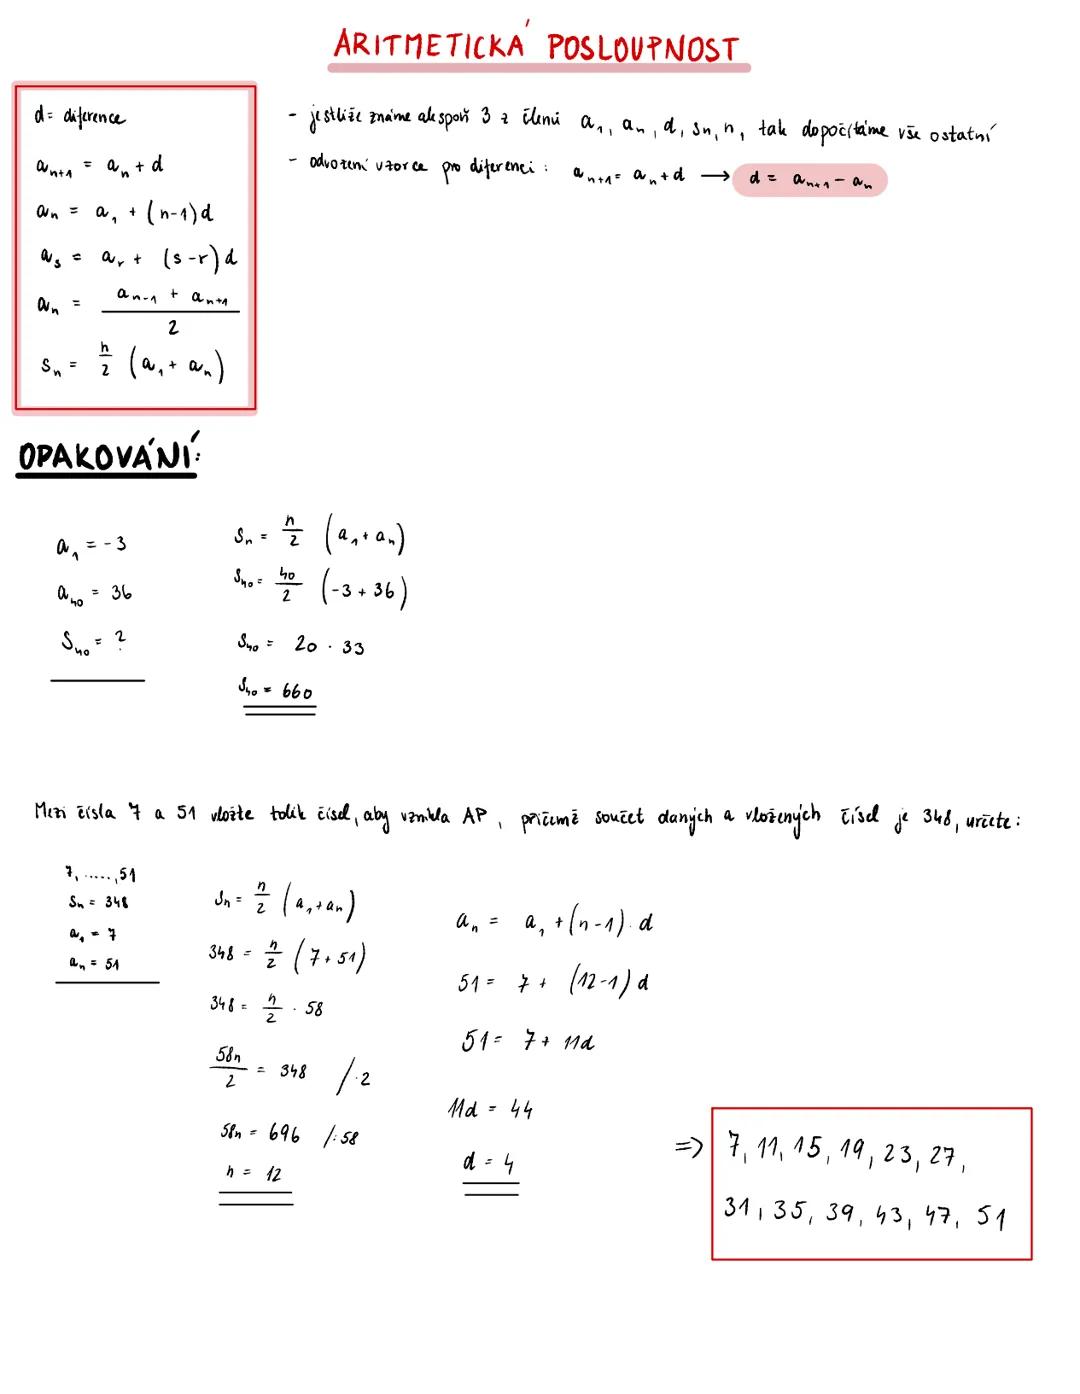 ARITMETICKÁ POSLOUPNOST
d = diference
a_{n+1} = a_n + d
a_n = a_1 + (n-1)d
a_s = a_r + (s-r)d
a_n = \frac{a_{n-1} + a_{n+1}}{2}
s_n = \frac{n}{2} (a_1 + a_n)
- jestliže známe alespoň 3 z členů a_1, a_n, d, s_n, n, tak dopočítáme vše ostatní
- odvození vzorce pro diferenci : a_{n+1} = a_n + d → d = a_{n+1} - a_n
OPAKOVÁNÍ:
a_1 = -3
a_{40} = 36
S_{40} = ?
S_n = \frac{n}{2} (a_1 + a_n)
S_{40} = \frac{40}{2} (-3 + 36)
S_{40} = 20 · 33
S_{40} = 660
Mezi čísla 7 a 51 vložte tolik čísel, aby vznikla AP, přičemž součet daných a vložených čísel je 348, určete :
7, ....., 51
S_n = 348
a_1 = 7
a_n = 51
S_n = \frac{n}{2} (a_1 + a_n)
348 = \frac{n}{2} (7 + 51)
348 = \frac{n}{2} · 58
\frac{58n}{2} = 348 / · 2
58n = 696 / : 58
n = 12
a_n = a_1 + (n-1) · d
51 = 7 + (12-1) d
51 = 7 + 11d
11d = 44
d = 4
=> 7, 11, 15, 19, 23, 27,
31, 35, 39, 43, 47, 51